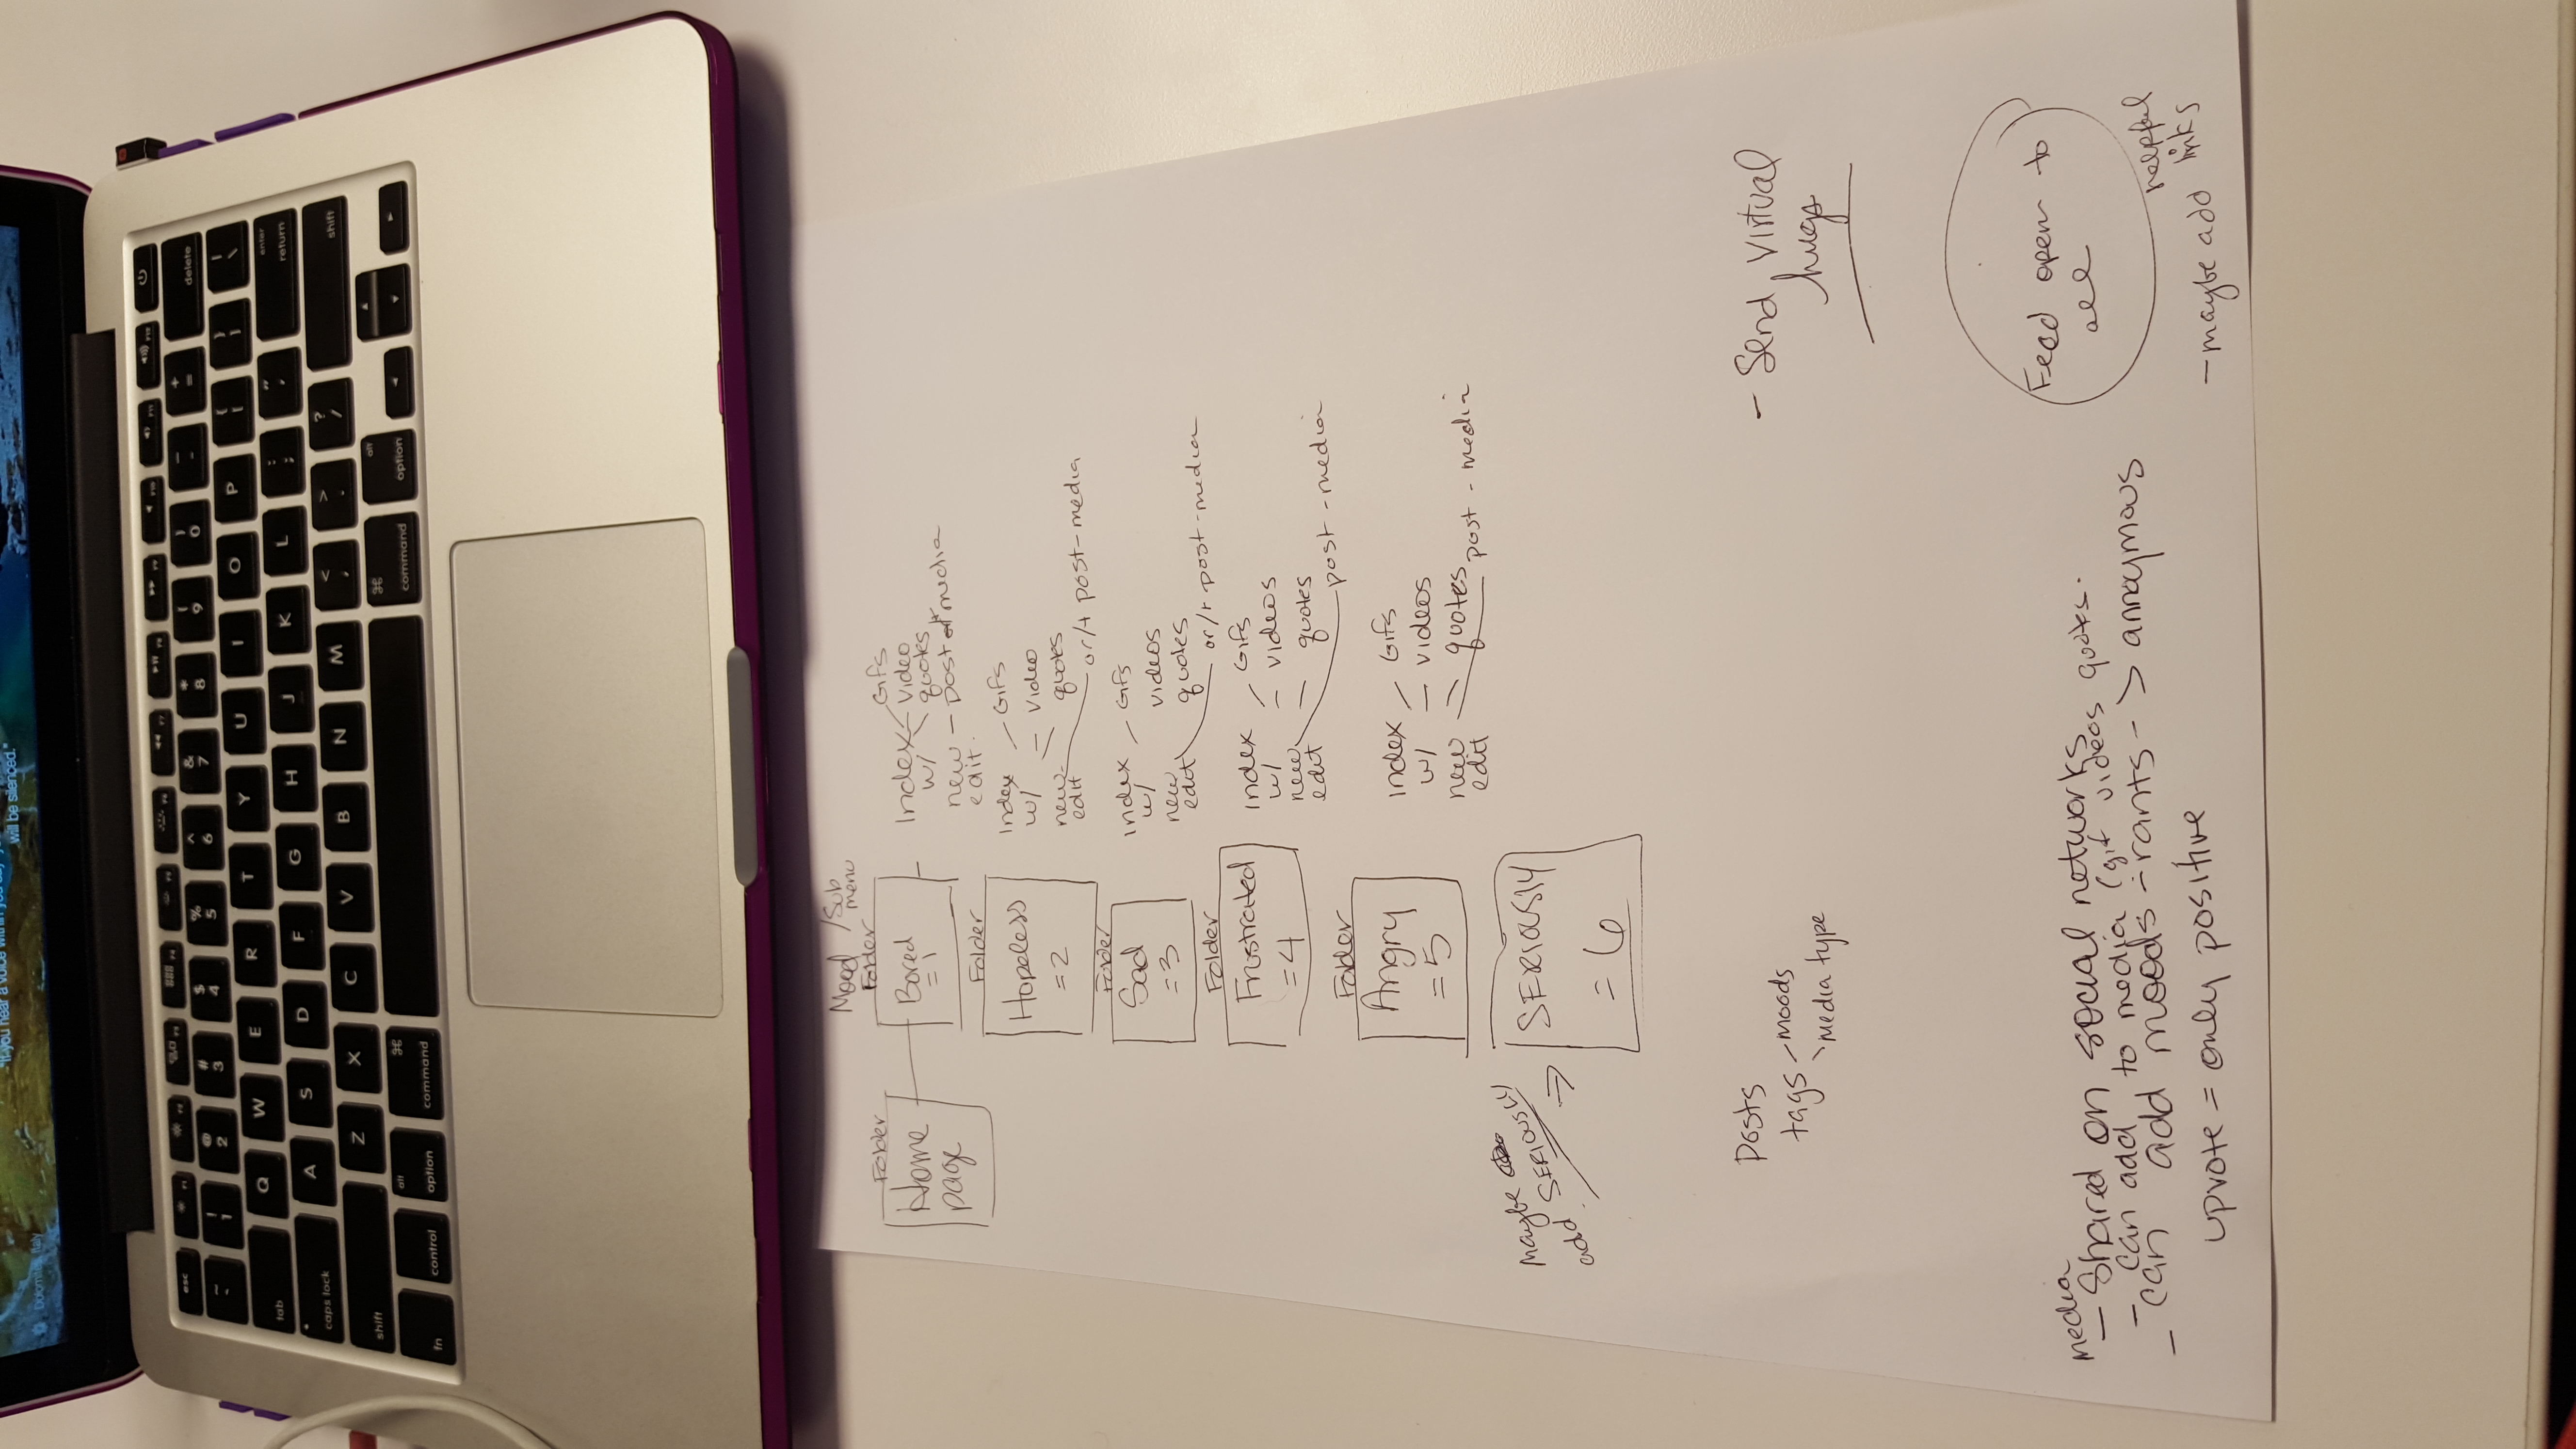 "If you hear a voice within you say
will be silenced."
Dolomites, Italy
esc F1 F2 F3 F4 F5 F6 F7 F8 F9 F10 F11 F12
~ ` ! 1 @ 2 # 3 $ 4 % 5 ^ 6 & 7 * 8 ( 9 ) 0 _ - + = delete
tab Q W E R T Y U I O P { [ } ] | \
caps lock A S D F G H J K L : ; " ' enter return
shift Z X C V B N M < , > . ? / shift
fn control alt option ⌘ command ⌘ command alt option
Mood / Sub
menu
Folder
Home
page
Folder
Bored
= 1
Index Gifs
w/ video
quotes
new - post media
edit.
Folder
Hopeless
= 2
Index Gifs
w/ - video
new quotes
edit or/+ post-media
Folder
Sad
= 3
Index - Gifs
w/ videos
new quotes
edit or/+ post-media
Folder
Frustrated
= 4
Index Gifs
w/ - videos
new - quotes
edit post - media
Folder
Angry
= 5
Index Gifs
w/ - videos
new quotes
edit post - media
Maybe
add SERIOUSLY
=>
SERIOUSLY
= 6
Posts
tags - moods
media type
- Send virtual
hugs
Feed open to
all
media
- Shared on social networks
- can add to media (gif videos quotes.
- can add moods - rants - > annoymous
upvote = only positive
helpful
- maybe add links